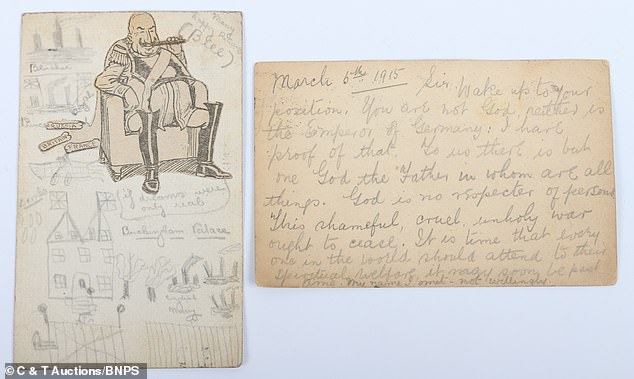 (Blee)
Blücher
RUSSIA
BRITAIN
FRANCE
(if dreams were
only real
Buckingham Palace
March 5th 1915 Sir, Wake up to your
position. You are not God, neither is
the Emperor of Germany: I have
proof of that. To us there is but
one God the Father in whom are all
things. God is no respecter of persons
This shameful, cruel, unholy war
ought to cease. It is time that every
one in the world should attend to their
spiritual welfare it may soon be past
time. My name I omit - not willingly.
© C & T Auctions/BNPS